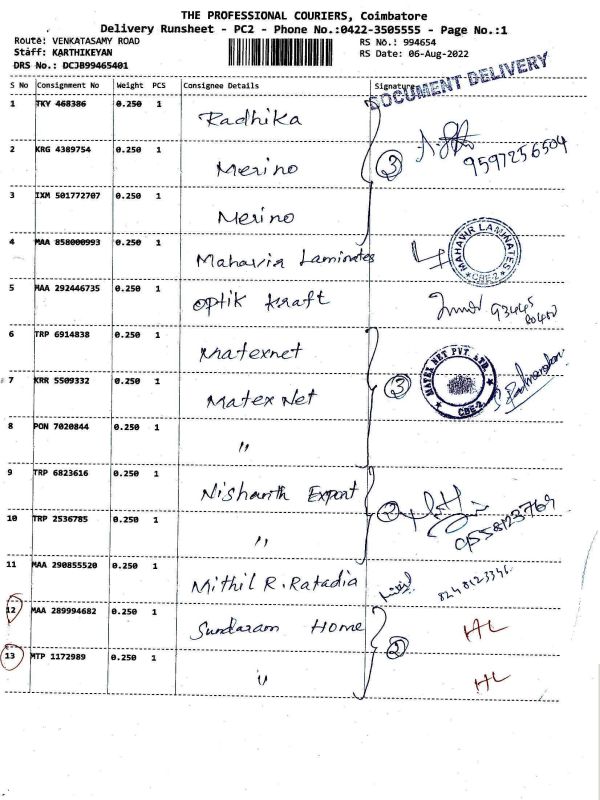 THE PROFESSIONAL COURIERS, Coimbatore
Delivery Runsheet - PC2 - Phone No.:0422-3505555 - Page No.:1
Route: VENKATASAMY ROAD
RS No.: 994654
Staff: KARTHIKEYAN
RS Date: 06-Aug-2022
DRS No.: DCJB99465401
DOCUMENT DELIVERY
S No Consignment No Weight PCS Consignee Details Signature
1 TKY 468386 0.250 1 Radhika
2 KRG 4389754 0.250 1 Merino 3 9597256504
3 IXM 501772707 0.250 1 Merino
4 MAA 858000993 0.250 1 Mahavir Laminates MAHAVIR LAMINATES CBE-2
5 MAA 292446735 0.250 1 Optik Kraft 93445
6 TRP 6914838 0.250 1 Matexnet
7 KRR 5509332 0.250 1 Matex Net 3 MATEX NET PVT. LTD. CBE-2
8 PON 7020844 0.250 1 "
9 TRP 6823616 0.250 1 Nishanth Export
10 TRP 2536785 0.250 1 "
11 MAA 290855520 0.250 1 Mithil R. Ratadia
12 MAA 289994682 0.250 1 Sundaram Home HL
13 MTP 1172989 0.250 1 " 2 HL